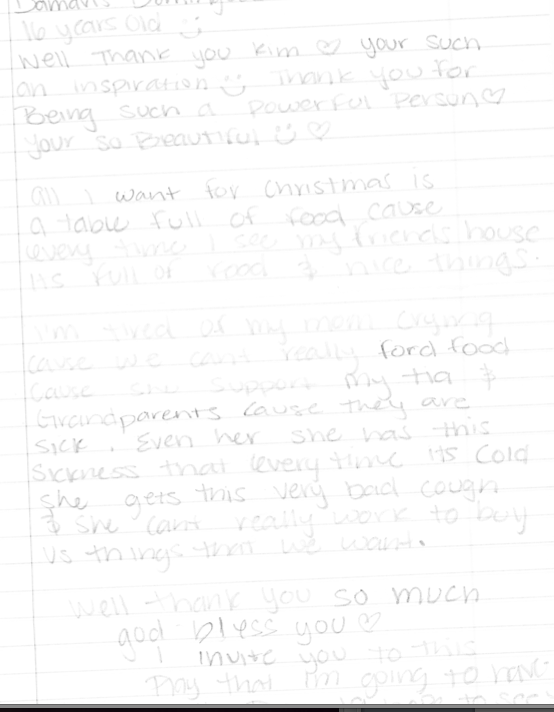 Damaris
16 years old :)
Well Thank you Kim ♡ your such
an inspiration :) Thank you for
Being such a Powerful Person♡
your so Beautiful :) ♡
all i want for christmas is
a table full of food cause
every time i see my friends house
its full of food & nice things.
I'm tired of my mom crying
cause we cant really ford food
cause she support my tia &
Grandparents cause they are
sick. Even her she has this
Sickness that every time its cold
she gets this very bad cough
& she cant really work to buy
us things that we want.
Well thank you so much
god bless you ♡
I invite you to this
Play that I'm going to have
to see